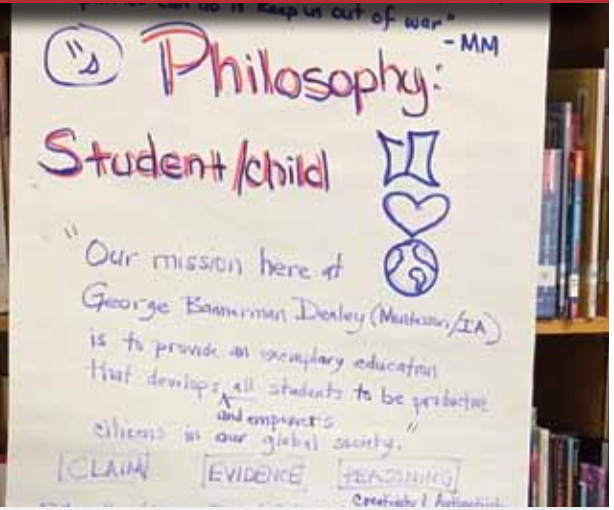 can do is keep us out of war"
- MM
Philosophy:
Student/child
"Our mission here at
George Bannerman Dealey (Montessori/IA)
is to provide an exemplary education
that develops all students to be productive
and empowers
citizens in our global society."
CLAIM EVIDENCE REASONING
Creativity /